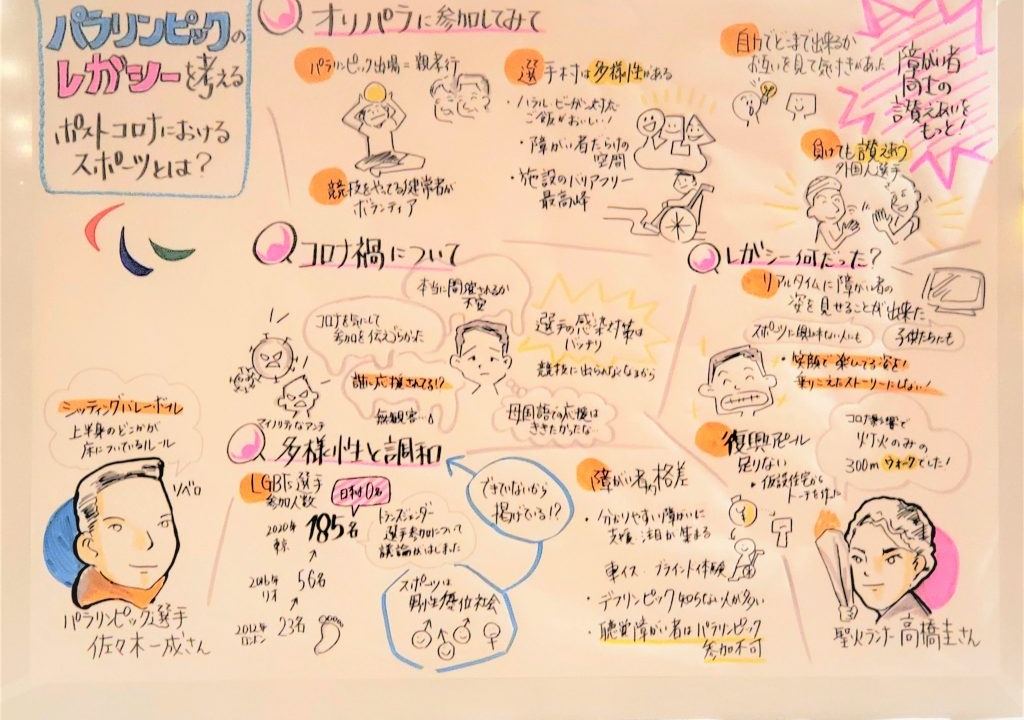 パラリンピックの
レガシーを考える
ポストコロナにおける
スポーツとは？
Q オリパラに参加してみて
パラリンピック出場=親孝行
競技をやってる健常者が
ボランティア
選手村は多様性がある
・ハラル・ビーガン対応
ご飯がおいしい!
・障がい者だらけの
空間
・施設のバリアフリー
最高峰
自力でどこまで出来るか
お互いを見て気付きがあった
障がい者
同士の
讃えあいを
もっと!
負けても讃えあう
外国人選手
Q コロナ禍について
本当に開演されるか
不安
コロナを気にして
参加を伝えづらかった
誰に応援されてる!?
無観客…
マイノリティなアンチ
選手の感染対策は
バッチリ
競技に出られなくなるから
母国語での応援は
ききたかったな…
Q レガシー何だった?
リアルタイムに障がい者の
姿を見せることが出来た
スポーツに興味ない人にも
子供たちにも
・笑顔で楽しんでる姿を!
乗りこえたストーリーにしない!
復興アピール
足りない
・仮設住宅から
トーチを作った
コロナ影響で
灯火のみの
300mウォークでした!
シッティングバレーボール
上半身のどこかが
床についているルール
リベロ
パラリンピック選手
佐々木一成さん
Q 多様性と調和
LGBTs選手
参加人数
日本は0名
2020年
東京
185名
2016年
リオ
56名
2012年
ロンドン
23名
トランスジェンダー
選手参加について
議論がはじました
できていないから
掲げている!?
スポーツは
男性優位社会
障がい者の格差
・分かりやすい障がいに
支援、注目が集まる
車イス・ブラインド体験
・デフリンピック知らない人が多い
・聴覚障がい者はパラリンピック
参加不可
聖火ランナー高橋圭さん